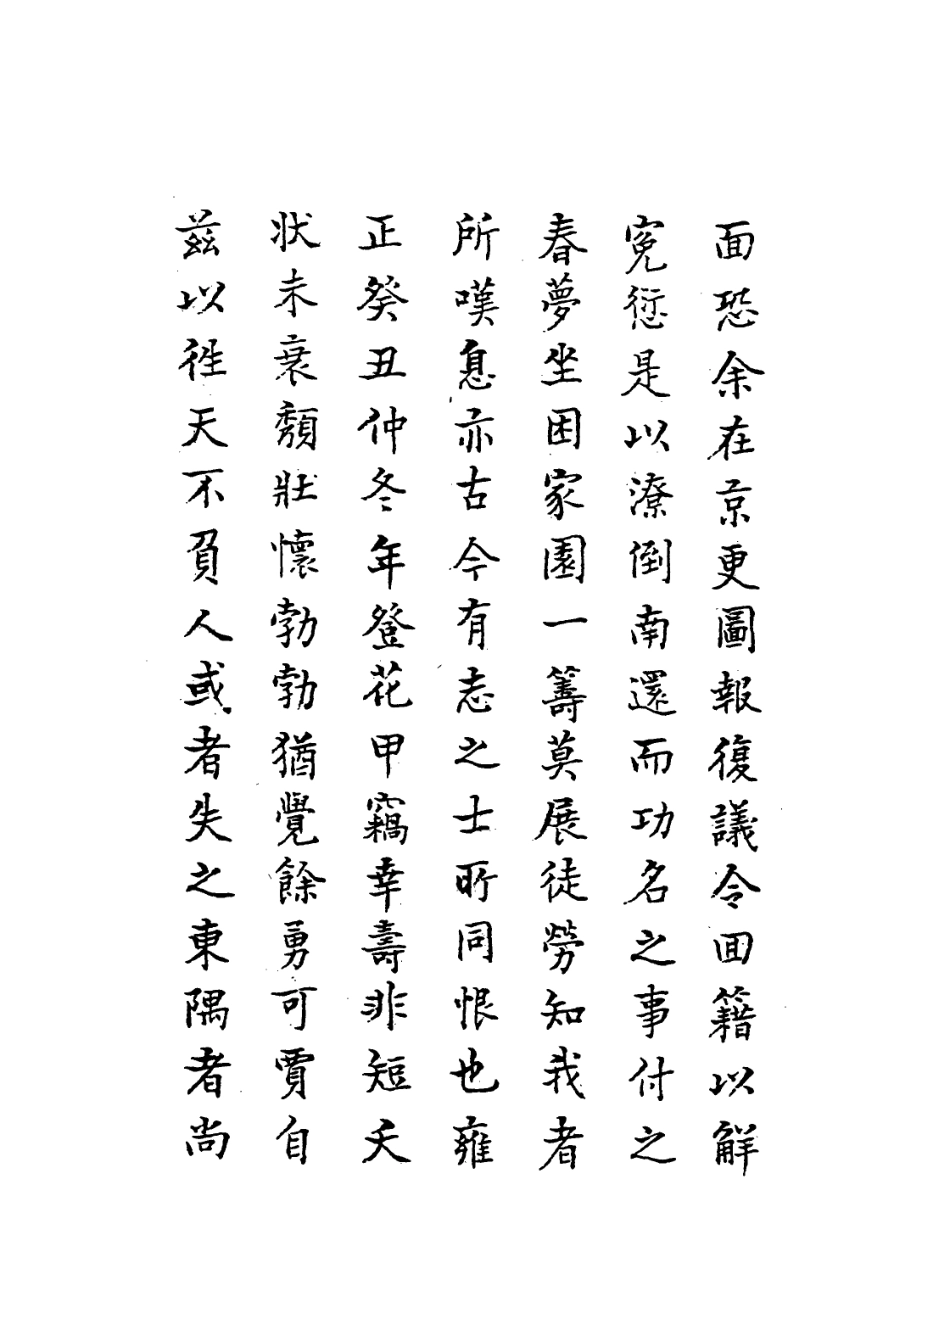 面恐余在京更圖報復議令回籍以解
冤愆是以潦倒南還而功名之事付之
春夢坐困家園一籌莫展徒勞知我者
所嘆息亦古今有志之士所同恨也雍
正癸丑仲冬年登花甲竊幸壽非短夭
狀未衰頹壯懷勃勃猶覺餘勇可賈自
茲以徃天不負人或者失之東隅者尚